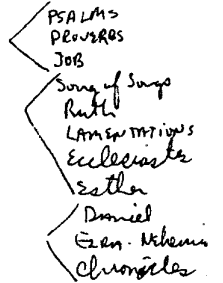 PSALMS
PROVERBS
JOB
Song of Songs
Ruth
LAMENTATIONS
Ecclesiastes
Esther
Daniel
EZRA-Nehemi
Chronicles